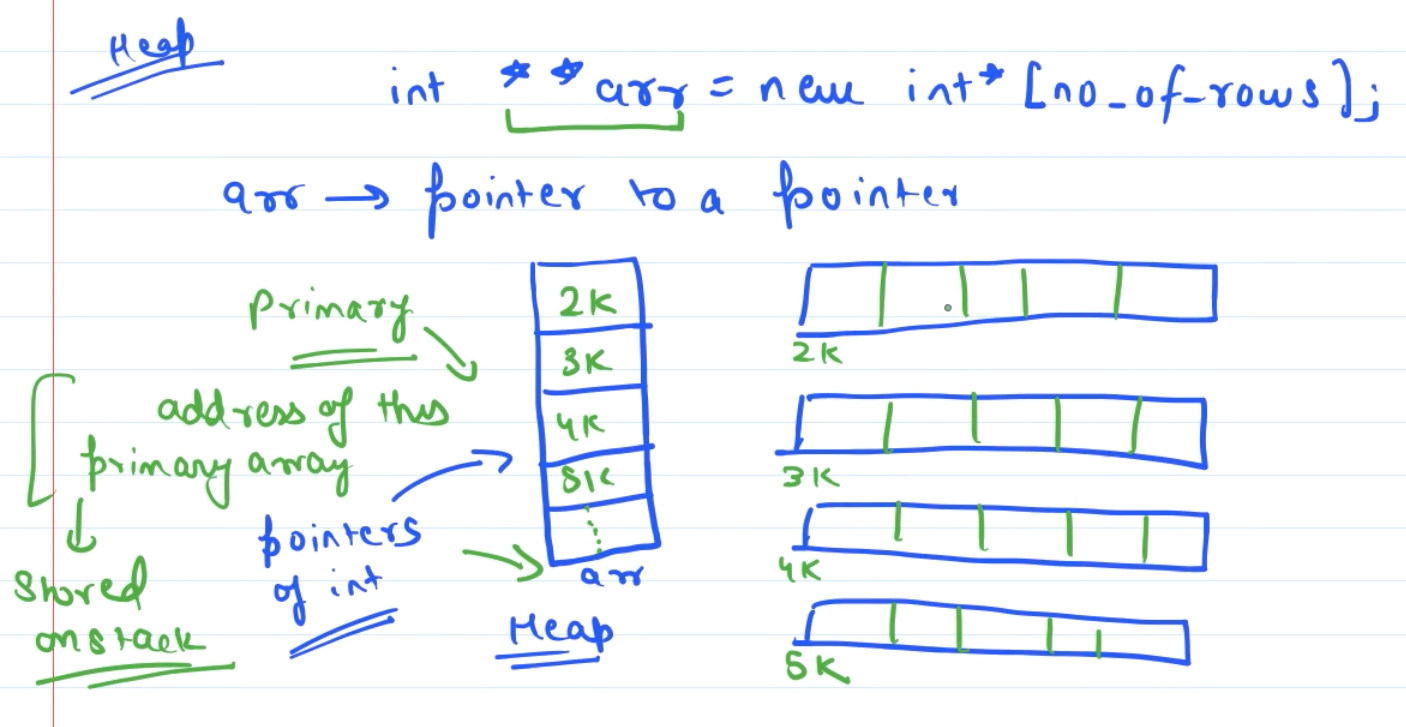 Heap
int **arr = new int* [no_of_rows];
arr → pointer to a pointer
Primary
address of this
primary array
↓
stored
on stack
pointers
of int
2K
3K
4K
5K
arr
Heap
2K
3K
4K
5K